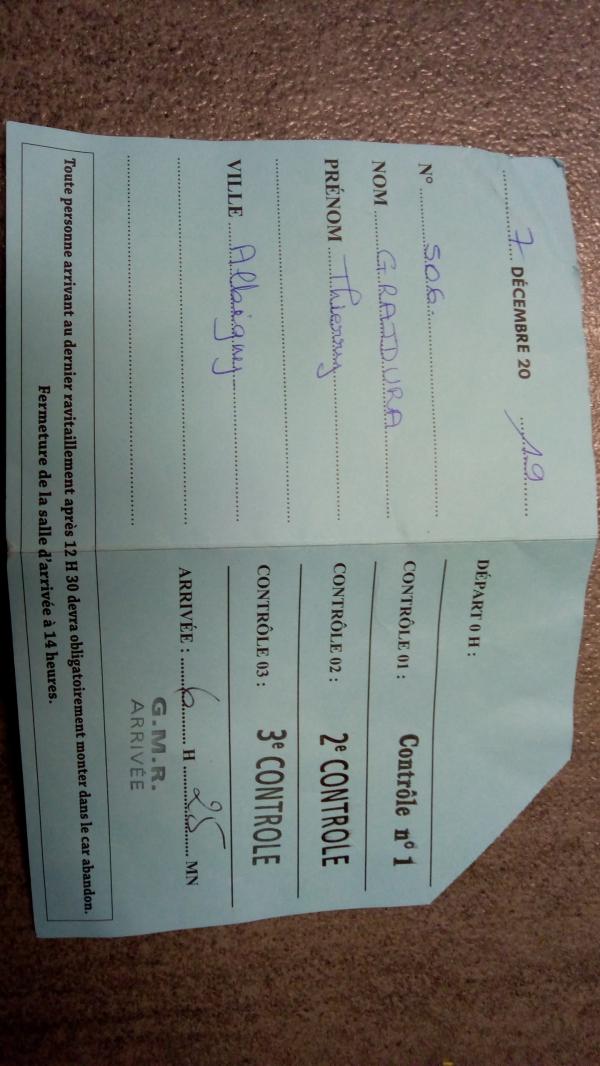 7 DÉCEMBRE 20 19
N° 506
NOM GRANDURA
PRÉNOM Thierry
VILLE Albigny
DÉPART 0 H :
CONTRÔLE 01 : Contrôle n° 1
CONTRÔLE 02 : 2e CONTROLE
CONTRÔLE 03 : 3e CONTROLE
ARRIVÉE : 6 H 25 MN
G.M.R.
ARRIVÉE
Toute personne arrivant au dernier ravitaillement après 12 H 30 devra obligatoirement monter dans le car abandon.
Fermeture de la salle d'arrivée à 14 heures.